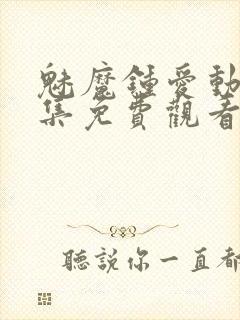 魅魔鍾愛動
集免費觀看
聽說你一直都